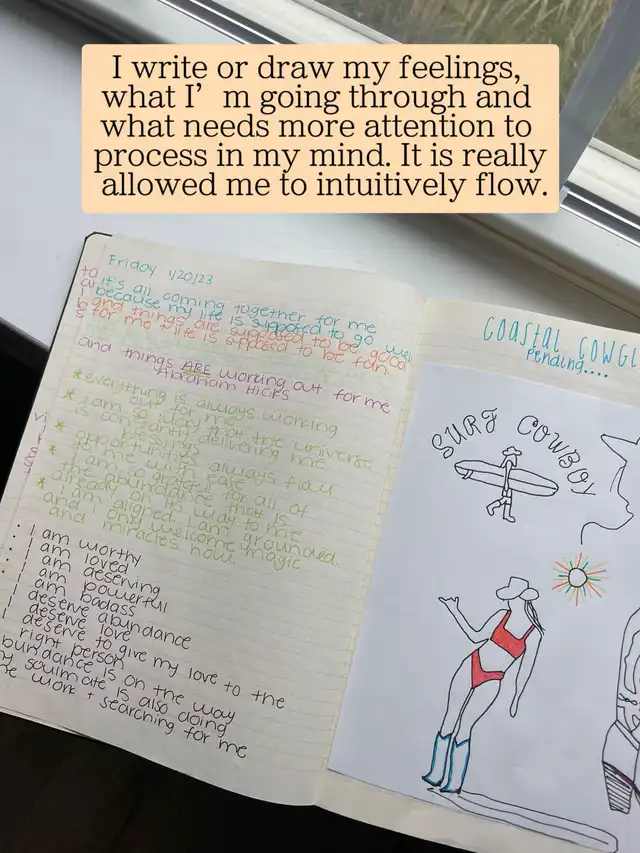 I write or draw my feelings,
what I'm going through and
what needs more attention to
process in my mind. It is really
allowed me to intuitively flow.
Friday 1/20/23
it's all coming together for me
because my life is supposed to go well
and things are supposed to be good
for me + life is supposed to be fun.
and things ARE working out for me
Abraham Hicks
* everything is always working
out for me
* I am so lucky that the universe
is constantly delivering me
blessings
* opportunities always flow
to me with ease
* I am so grateful for all of
the abundance that is
already on its way to me
* I am aligned. I am grounded.
and I only welcome magic
and miracles now.
I am worthy
I am loved
I am deserving
I am powerful
I am badass
I deserve abundance
I deserve love
deserve to give my love to the
right person
bundance is on the way
y soulmate is also doing
he work + searching for me
COASTAL COWGI
pending....
SURF COWBOY